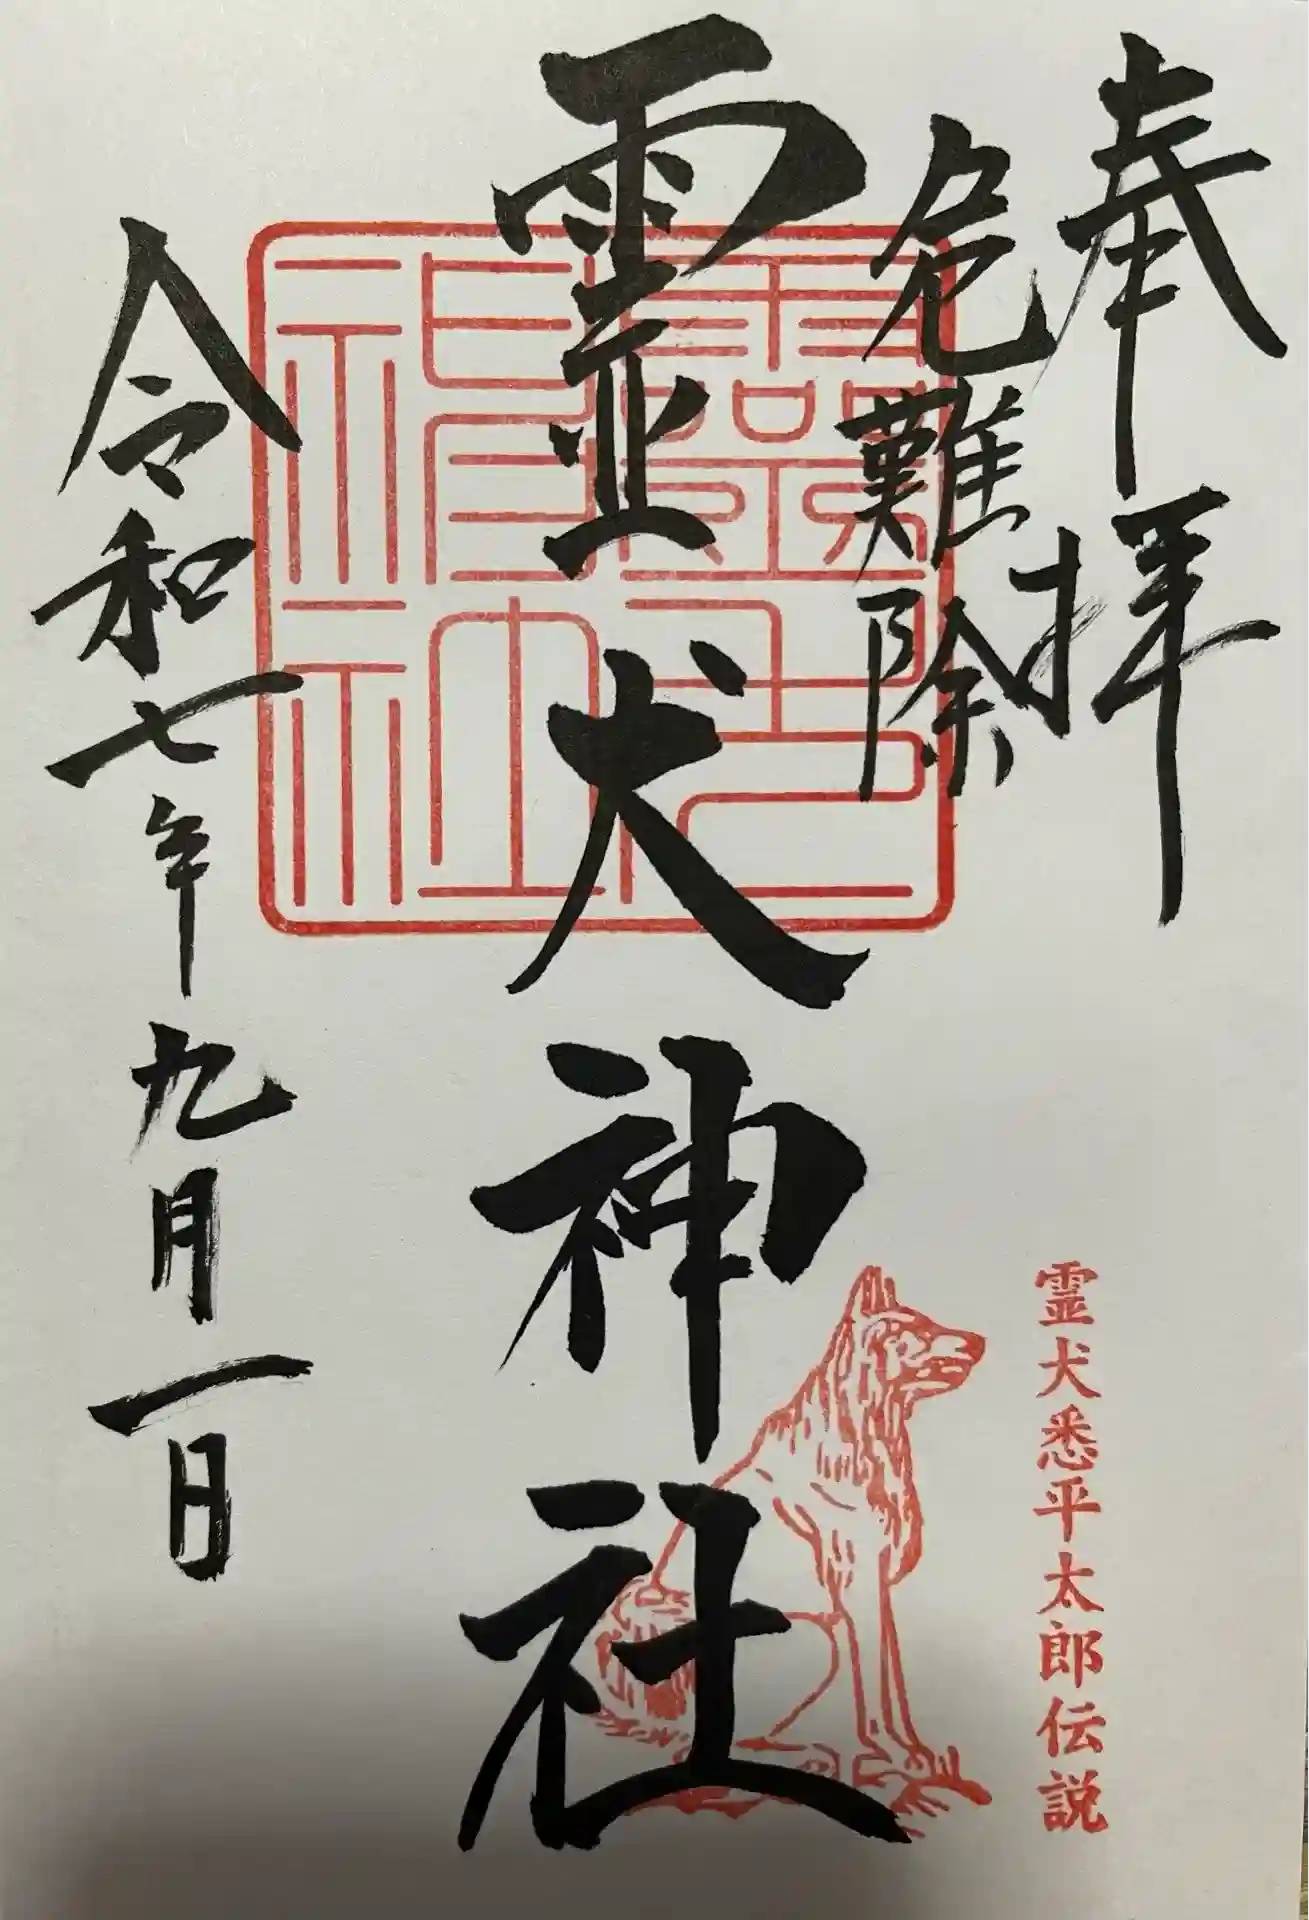 奉拝
危難除
霊犬神社
霊犬神社
令和七年九月一日
霊犬悉平太郎伝説